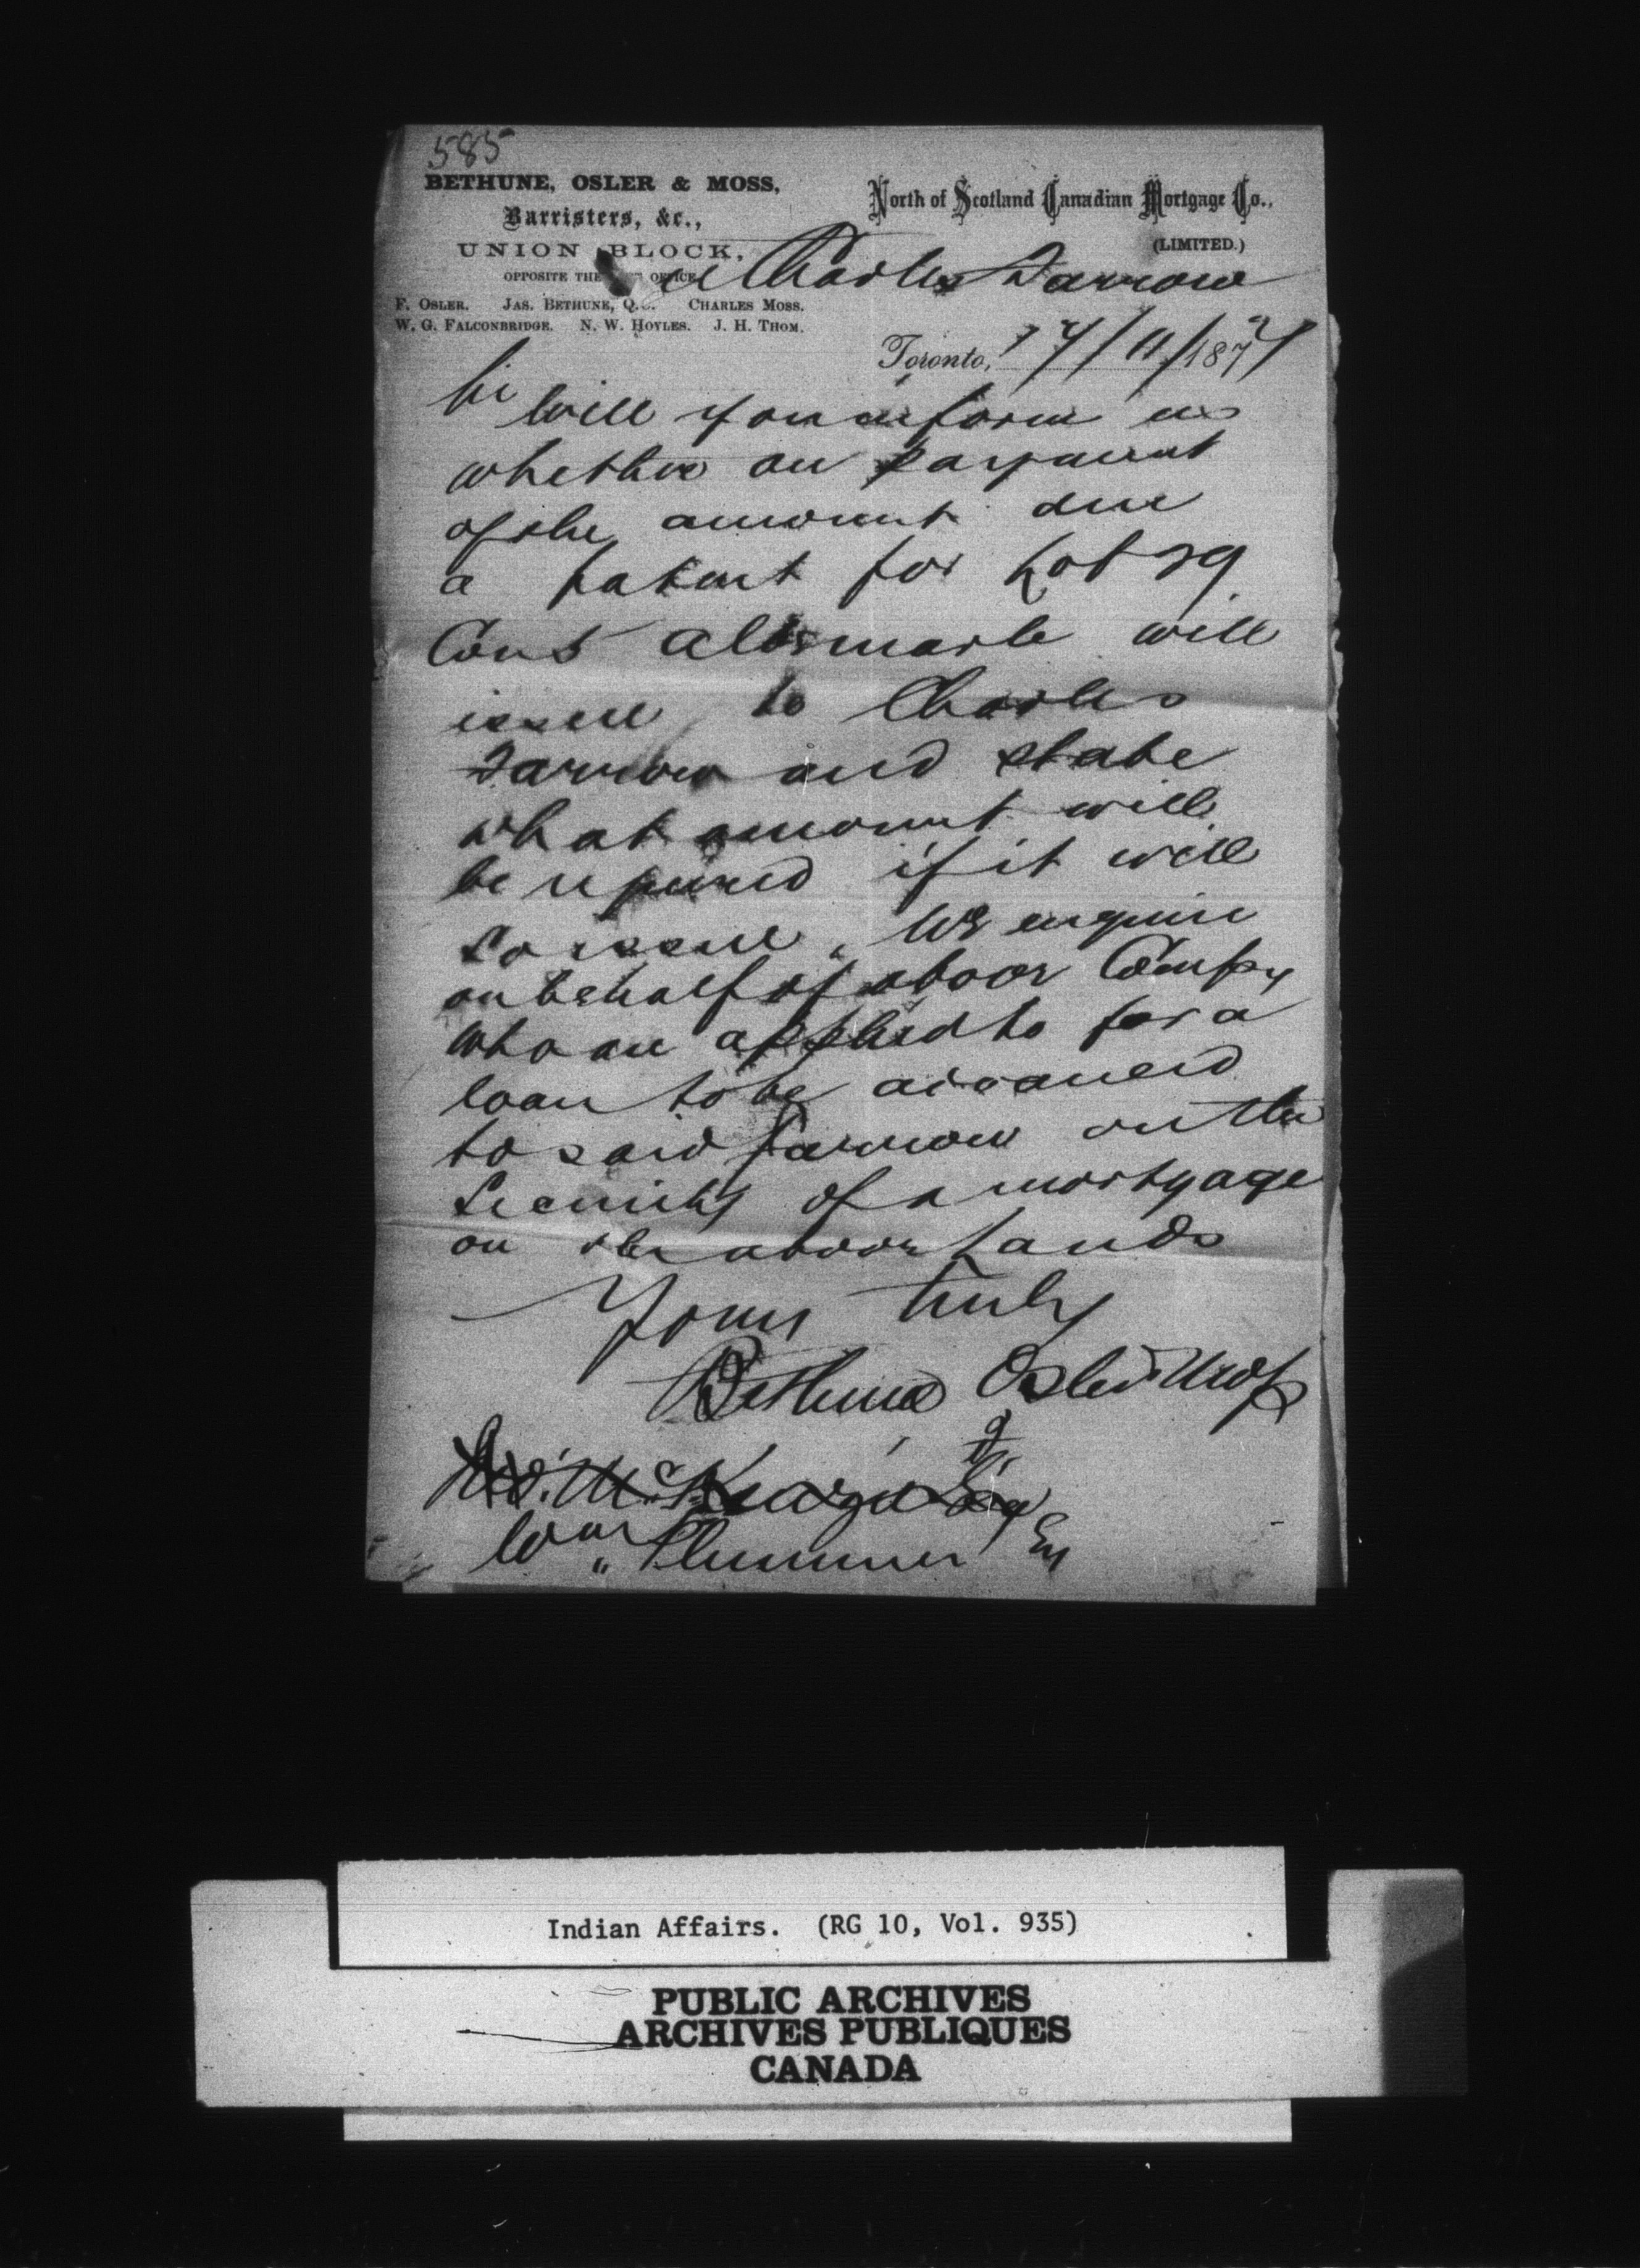 585
BETHUNE, OSLER & MOSS,
Barristers, &c.,
UNION BLOCK,
OPPOSITE THE OFFICE
F. OSLER. JAS. BETHUNE, Q.C. CHARLES MOSS.
W. G. FALCONBRIDGE. N. W. HOYLES. J. H. THOM.
North of Scotland Canadian Mortgage Co.,
(LIMITED.)
re Charles Farrow
Toronto, 17/11/1877
Sir
Will you inform us
whether on payment
of the amount due
a patent for Lot 29
Con 5 Albemarle will
issue to Charles
Farrow and state
what amount will
be required if it will
so issue. We enquire
on behalf of above Compy
who are applied to for a
loan to be advanced
to said Farrow on the
Security of a mortgage
on the above lands
Yours truly
Bethune Osler & Moss
McKenzie Esq
Wm Plummer Esq
Indian Affairs. (RG 10, Vol. 935)
PUBLIC ARCHIVES
ARCHIVES PUBLIQUES
CANADA